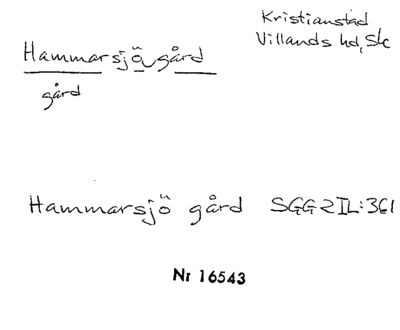 Kristianstad
Villands hd, Sk
Hammarsjö gård
gård
Hammarsjö gård SGG 2 IL:361
Nr 16543